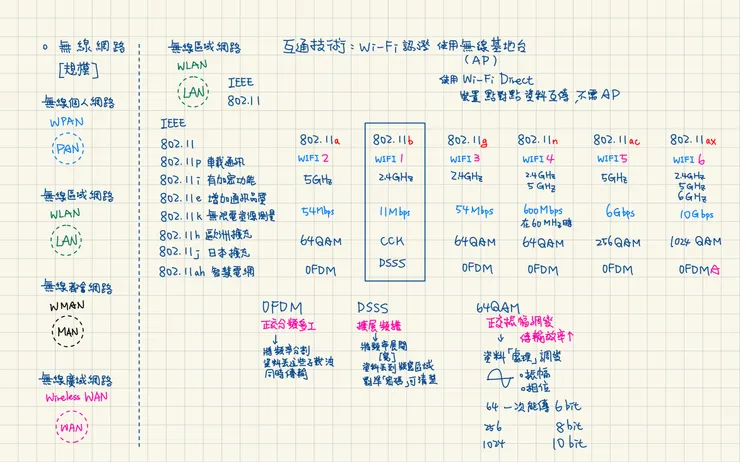 無線網路
[規模]
無線個人網路
WPAN
PAN
無線區域網路
WLAN
LAN
無線都會網路
WMAN
MAN
無線廣域網路
Wireless WAN
WAN
無線區域網路
WLAN
LAN
IEEE
802.11
互通技術：Wi-Fi 認證 使用無線基地台
(AP)
使用 Wi-Fi Direct
裝置 點對點 資料互傳，不需AP
IEEE
802.11
802.11p 車載通訊
802.11i 有加密功能
802.11e 增加通訊品質
802.11k 無線電資源測量
802.11h 歐洲擴充
802.11j 日本擴充
802.11ah 智慧電網
802.11a 802.11b 802.11g 802.11n 802.11ac 802.11ax
WIFI 2 WIFI 1 WIFI 3 WIFI 4 WIFI 5 WIFI 6
5GHz 2.4GHz 2.4GHz 2.4GHz 5GHz 2.4GHz
5GHz 5GHz
6GHz
54Mbps 11Mbps 54Mbps 600Mbps 6Gbps 10Gbps
在60MHz時
64QAM CCK 64QAM 64QAM 256QAM 1024 QAM
OFDM DSSS OFDM OFDM OFDM OFDMA
OFDM
正交分頻多工
↓
將頻率分割
資料丟這些子載波
同時傳輸
DSSS
擴展頻譜
↓
將頻率展開
[寬]
資料丟到頻寬區域
對準「密碼」可清楚
64QAM
正交振幅調變
↓ 傳輸效率↑
資料「處理」調變
振幅
相位
64 一次能傳 6 bit
256 8 bit
1024 10 bit